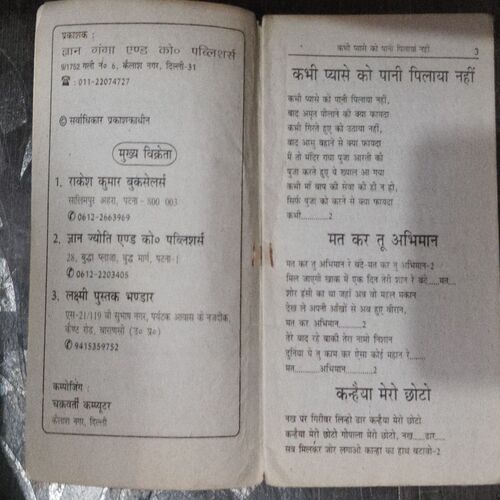 प्रकाशक :
ज्ञान गंगा एण्ड को० पब्लिशर्स
9/1752 गली नं० 6, कैलाश नगर, दिल्ली-31
☎ : 011-22074727
© सर्वाधिकार प्रकाशकाधीन
मुख्य विक्रेता
1. राकेश कुमार बुकसेलर्स
सालिमपुर अहरा, पटना - 800 003
✆ 0612-2663969
2. ज्ञान ज्योति एण्ड को० पब्लिशर्स
28, बुद्धा प्लाजा, बुद्ध मार्ग, पटना-1
✆ 0612-2203405
3. लक्ष्मी पुस्तक भण्डार
एस-21/119 बी सुभाष नगर, पर्यटक आवास के नजदीक,
कैण्ट रोड, वाराणसी (उ० प्र०)
✆ 9415359752
कम्पोजिंग :
चक्रवर्ती कम्प्यूटर
कैलाश नगर, दिल्ली
कभी प्यासे को पानी पिलाया नहीं 3
कभी प्यासे को पानी पिलाया नहीं
कभी प्यासे को पानी पिलाया नहीं,
बाद अमृत पीलाने को क्या फायदा
कभी गिरते हुए को उठाया नहीं,
बाद आसु बहाने से क्या फायदा
मैं तो मंदिर गया पूजा आरती की
पूजा करते हुए ये ख्याल आ गया
कभी माँ बाप की सेवा को ही न हो,
सिर्फ पूजा को करने से क्या फायदा
कभी............2
मत कर तू अभिमान
मत कर तू अभिमान रे बंदे-मत कर तू अभिमान-2
मिल जाएगी खाक में एक दिन तेरी शान रे बंदे.....मत...
शोर हंसी का था जहाँ अब वो महल मकान
देख ले अपनी आँखों से अब हुए वीरान,
मत कर अभिमान..........2
तेरे बाद रहे बाकी तेरा नामो निशान
दुनिया पे तू काम कर ऐसा कोई महान रे......
मत..........अभिमान.............2
कन्हैया मेरो छोटो
नख पर गिरीवर लिन्हो डार कन्हैया मेरो छोटो
कन्हैया मेरो छोटो गोपाला मेरो छोटो, नख.....डार....
सब मिलकर जोर लगाओ कान्हा का हाथ बटावो-2